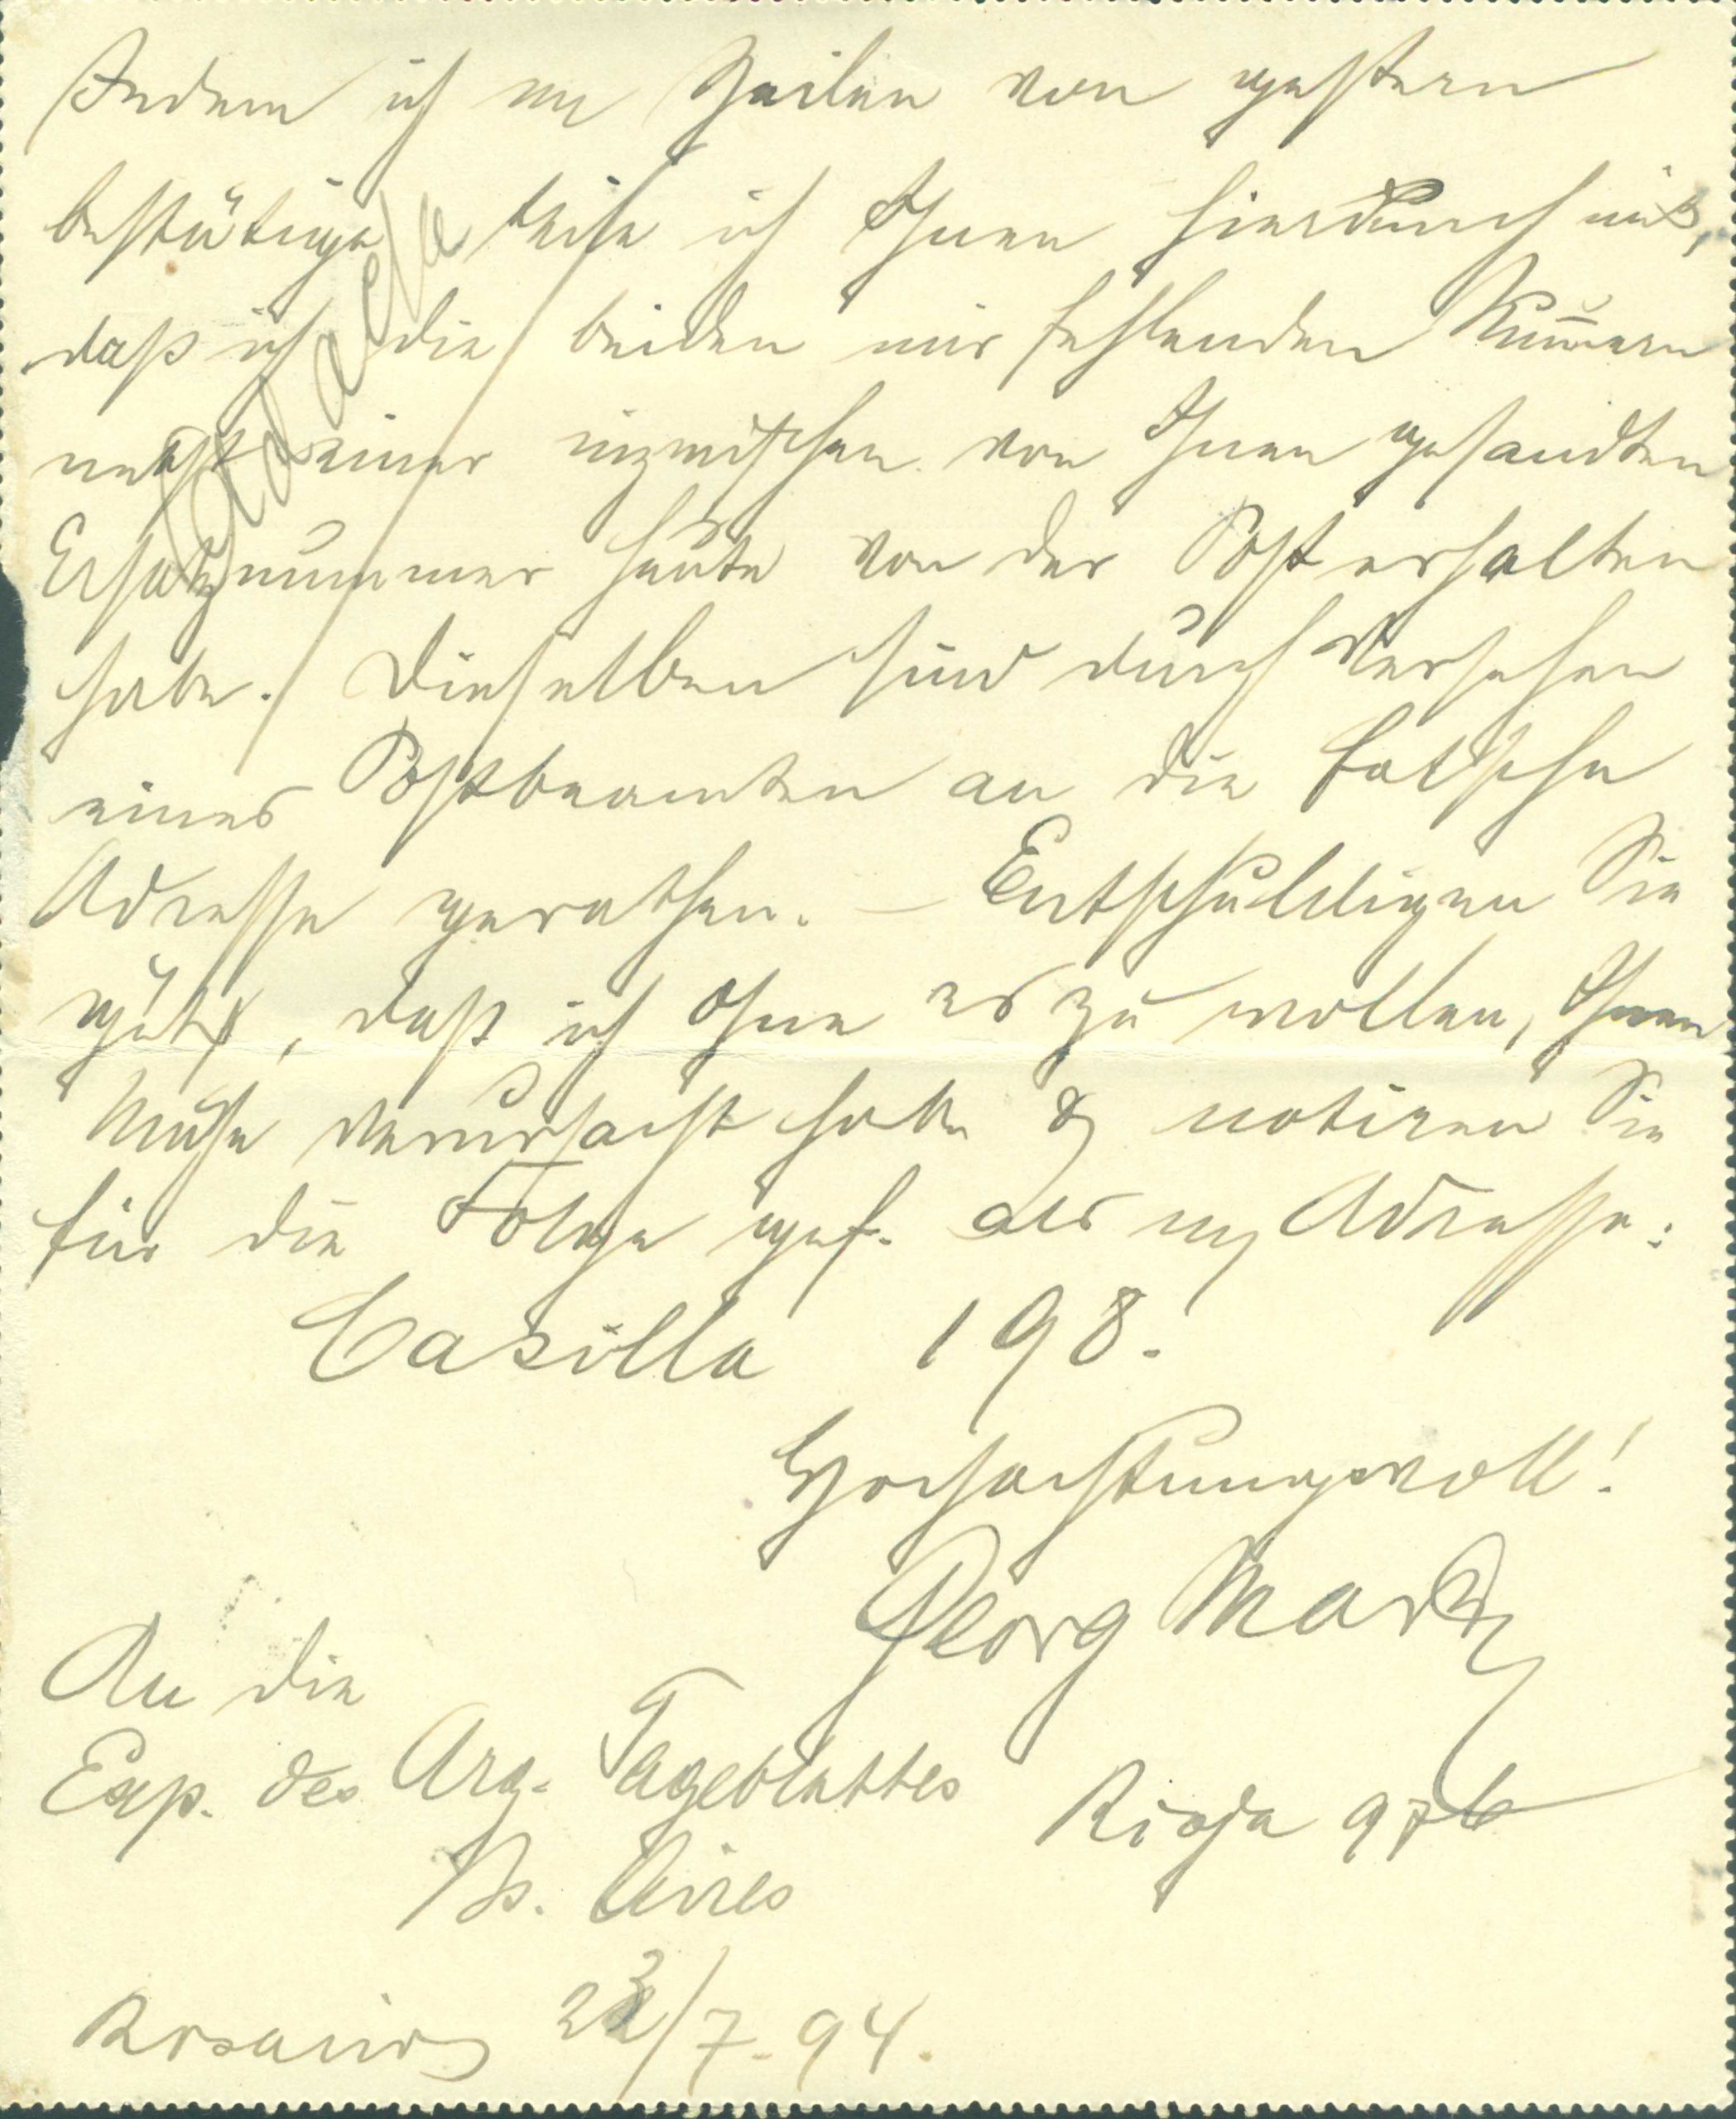 Indem ich m/ Zeilen von gestern
bestätige theile ich Ihnen hierdurch mit,
daß ich die beiden mir fehlenden Num̄ern
nebst einer inzwischen von Ihnen gesandten
Ersatznummer heute von der Post erhalten
habe. Dieselben sind durch Versehen
eines Postbeamten an die falsche
Adresse gerathen. – Entschuldigen Sie
gütg, daß ich ohne es zu wollen, Ihnen
Mühe verursacht habe & notiren Sie
für die Folge gef. als m/ Adresse:
Casilla 198.
Hochachtungsvoll!
Georg
An die
Exp. des Arg. Tageblattes
Rioja 976
Bs. Aires
Rosario 23/7.94.